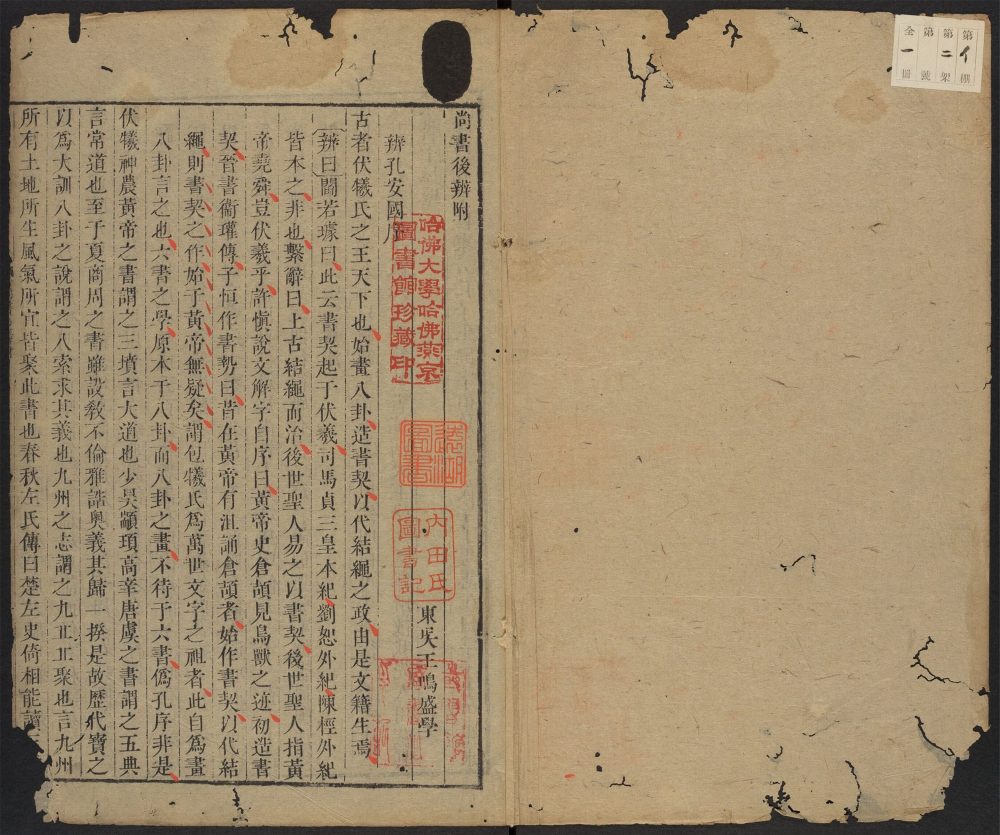 第亻棚
第二架
第 號
全一圖
尚書後辨附
東吳王鳴盛學
辨孔安國序
古者伏犧氏之王天下也始畫八卦造書契以代結繩之政由是文籍生焉
辨曰閻若璩曰此云書契起于伏羲司馬貞三皇本紀劉恕外紀陳桱外紀
皆本之非也繫辭曰上古結繩而治後世聖人易之以書契後世聖人指黃
帝堯舜豈伏羲乎許愼說文解字自序曰黃帝史倉頡見鳥獸之迹初造書
契晉書衞瓘傳子恒作書勢曰昔在黃帝有沮誦倉頡者始作書契以代結
繩則書契之作始于黃帝無疑矣謂包犧氏爲萬世文字之祖者此自爲畫
八卦言之也六書之學原本于八卦而八卦之畫不待于六書僞孔序非是
伏犧神農黃帝之書謂之三墳言大道也少昊顓頊高辛唐虞之書謂之五典
言常道也至于夏商周之書雖設敎不倫雅誥奧義其歸一揆是故歷代寶之
以爲大訓八卦之說謂之八索求其義也九州之志謂之九丘丘聚也言九州
所有土地所生風氣所宜皆聚此書也春秋左氏傳曰楚左史倚相能讀
哈佛大學哈佛燕京
圖書館珍藏印
內田氏
圖書記